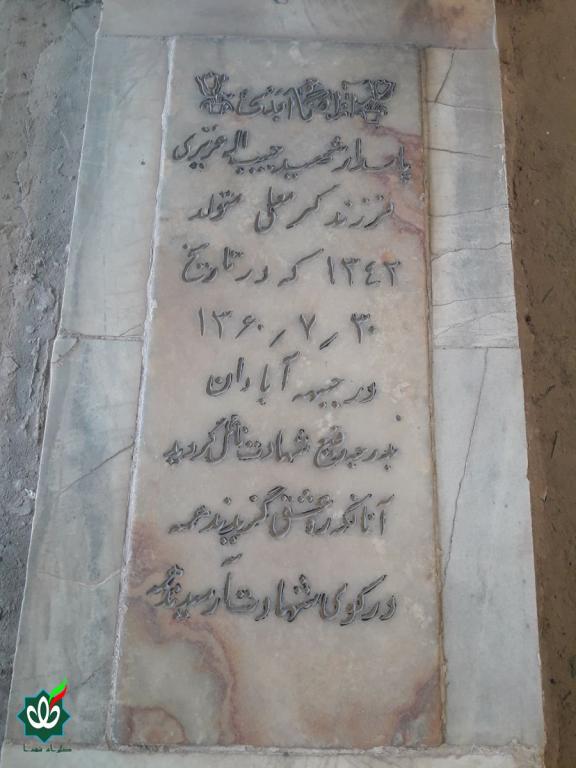 آرامگاه ابدی
پاسدار شهید حبیب اله عزیزی
فرزند کرمعلی متولد
۱۳۴۲ که در تاریخ
۱۳۶۰٫۷٫۳۰
در جبهه آبادان
بدرجه رفیع شهادت نائل گردید
آنانکه ره عشق گزیدند همه
در کوی شهادت آرمیدند همه